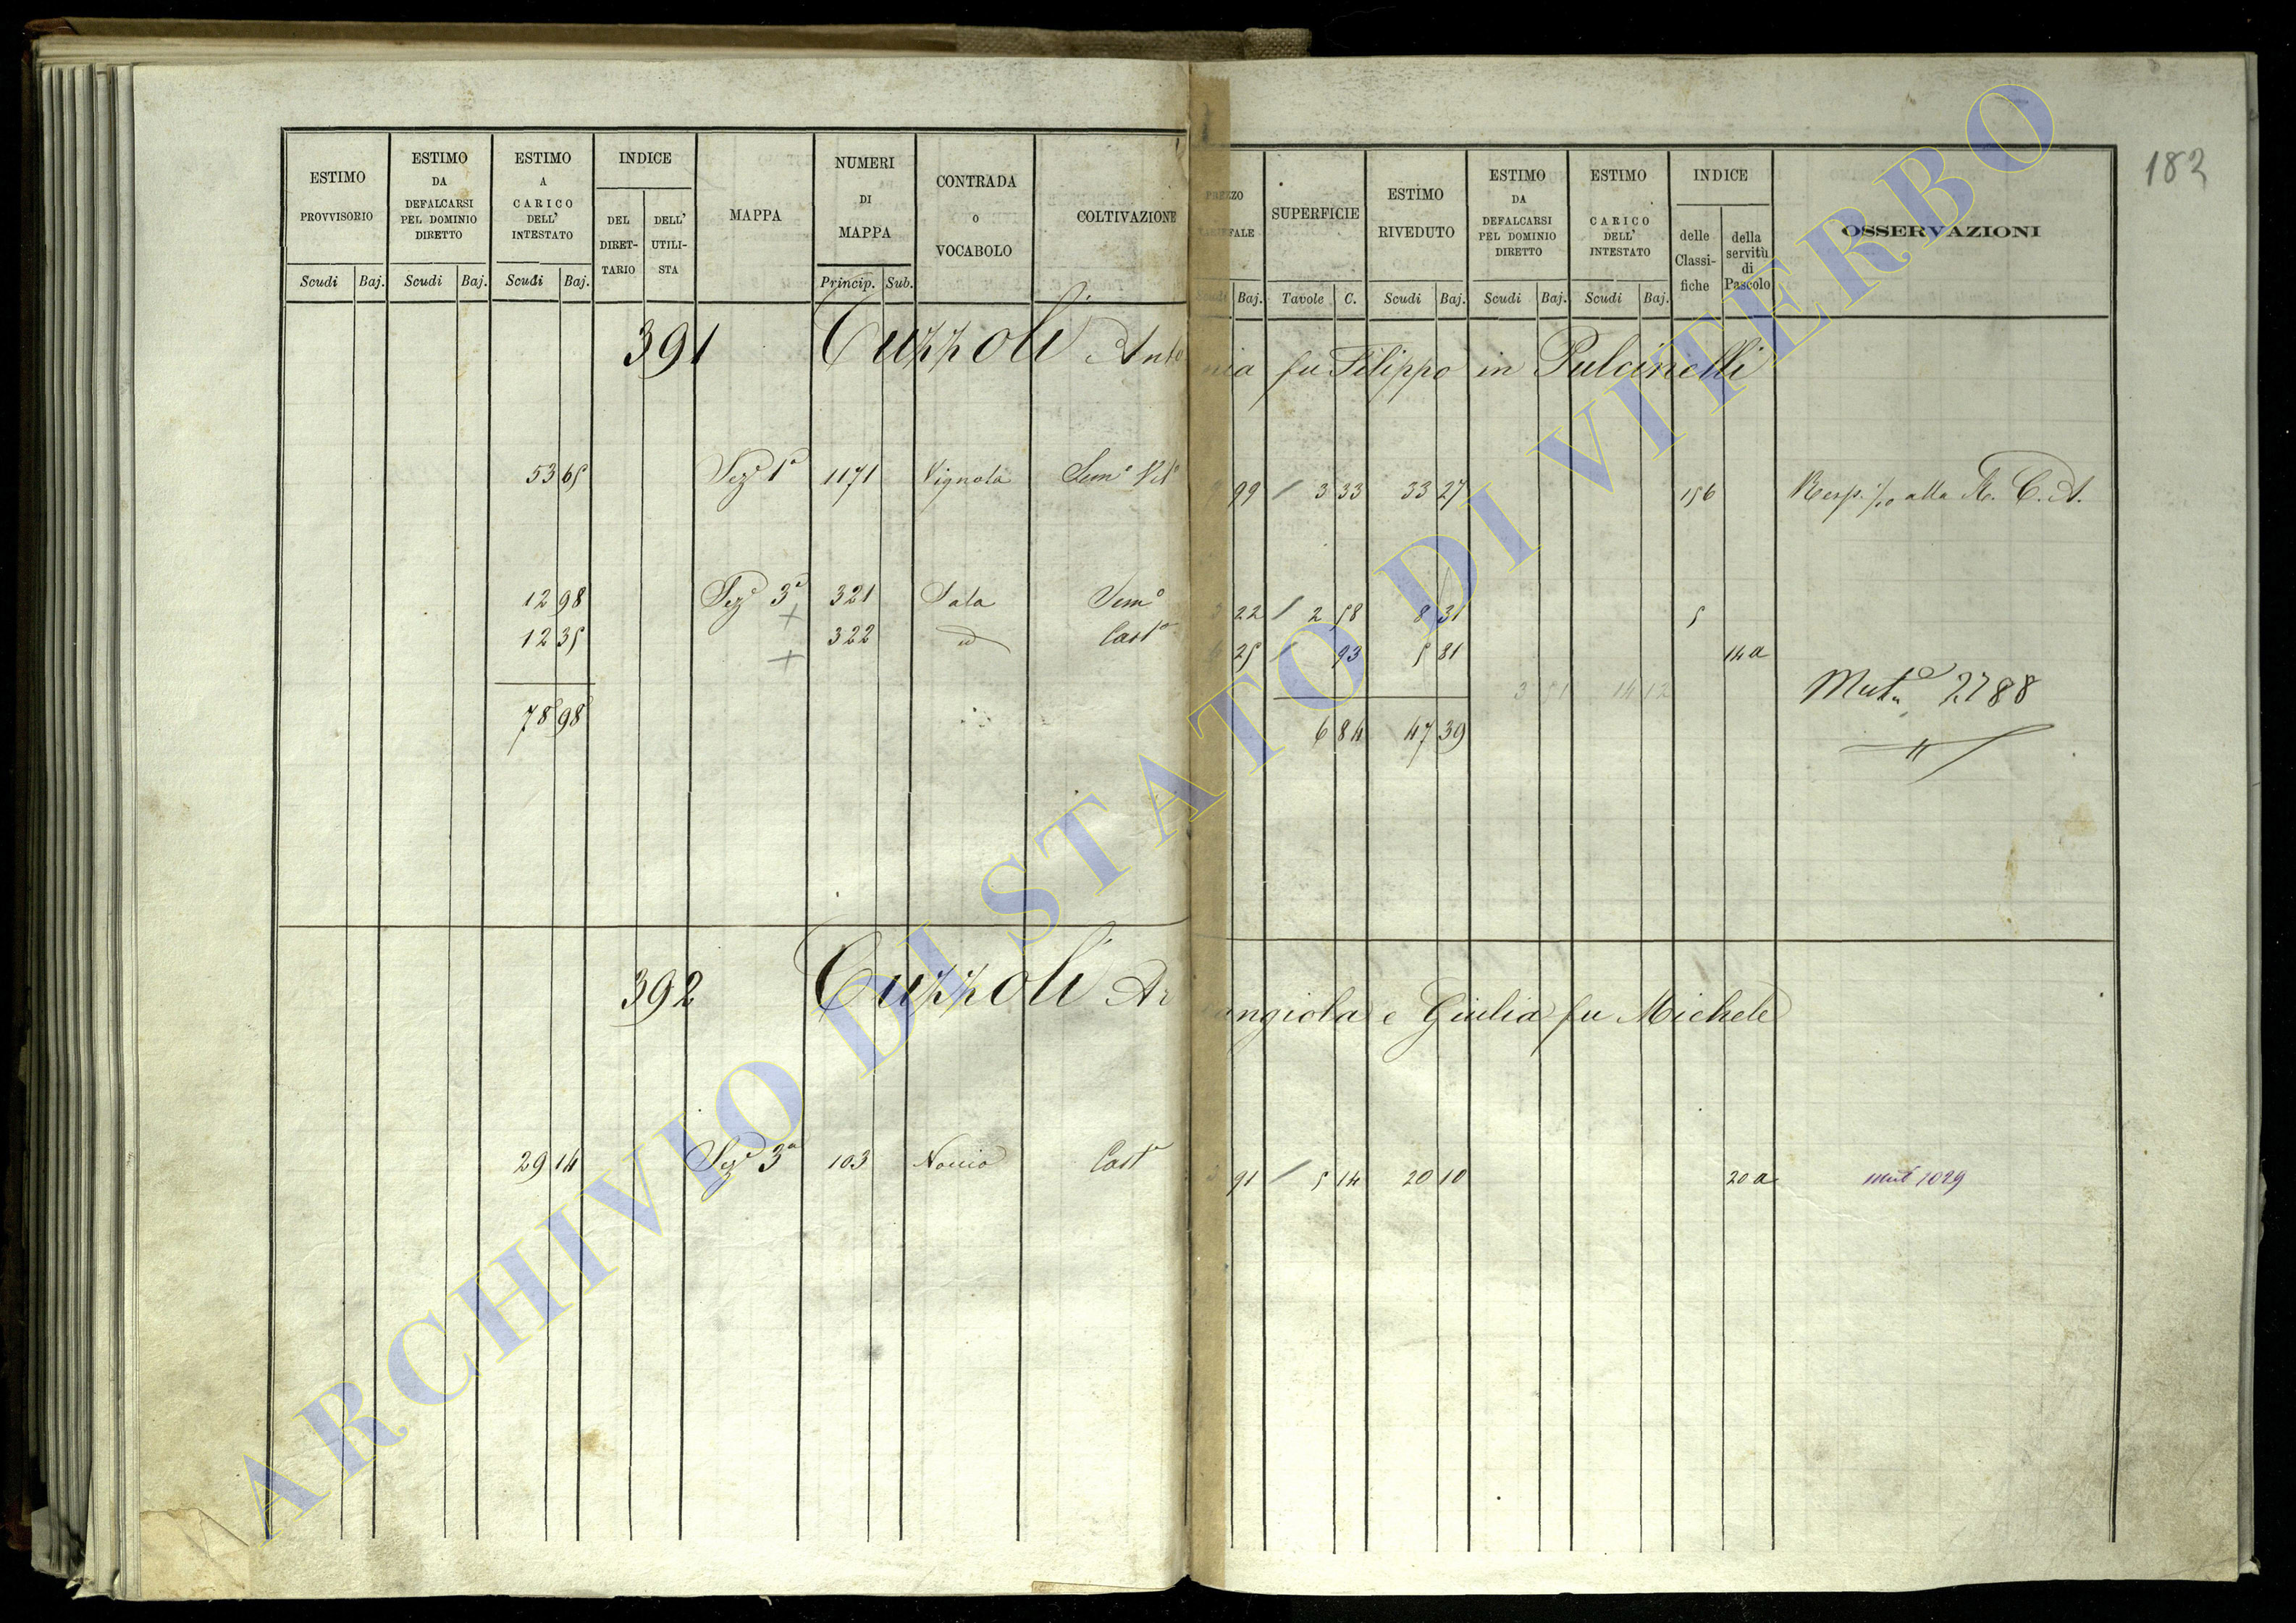 182
ESTIMO PROVVISORIO Scudi Baj.
ESTIMO DA DEFALCARSI PEL DOMINIO DIRETTO Scudi Baj.
ESTIMO A CARICO DELL' INTESTATO Scudi Baj.
INDICE DEL DIRET-TARIO DELL' UTILI-STA
MAPPA
NUMERI DI MAPPA Princip. Sub.
CONTRADA O VOCABOLO
COLTIVAZIONE
Baj.
SUPERFICIE Tavole C.
ESTIMO RIVEDUTO Scudi Baj.
ESTIMO DA DEFALCARSI PEL DOMINIO DIRETTO Scudi Baj.
ESTIMO CARICO DELL' INTESTATO Scudi Baj.
INDICE delle Classi-fiche della servitù di Pascolo
OSSERVAZIONI
391 Cuzzoli Antonia fu Filippo in Pulcinelli
53 65 Sez.e 1a 1171 Vignola Sem.o Vit.o 99 / 3 33 33 27 156 alla R. C. A.
12 98 Sez.e 3a 321 Sala Sem.o 22 / 2 58 8 31 5
12 35 + 322 id Cast.o 25 / 93 5 81 14 a
+ 3 51 14 12 Mut.a 2788
78 98 6 84 47 39
392 Cuzzoli Arcangiola e Giulia fu Michele
29 14 Sez.e 3a 103 Cast.o 91 / 5 14 20 10 20 a mut 1029
ARCHIVIO DI STATO DI VITERBO